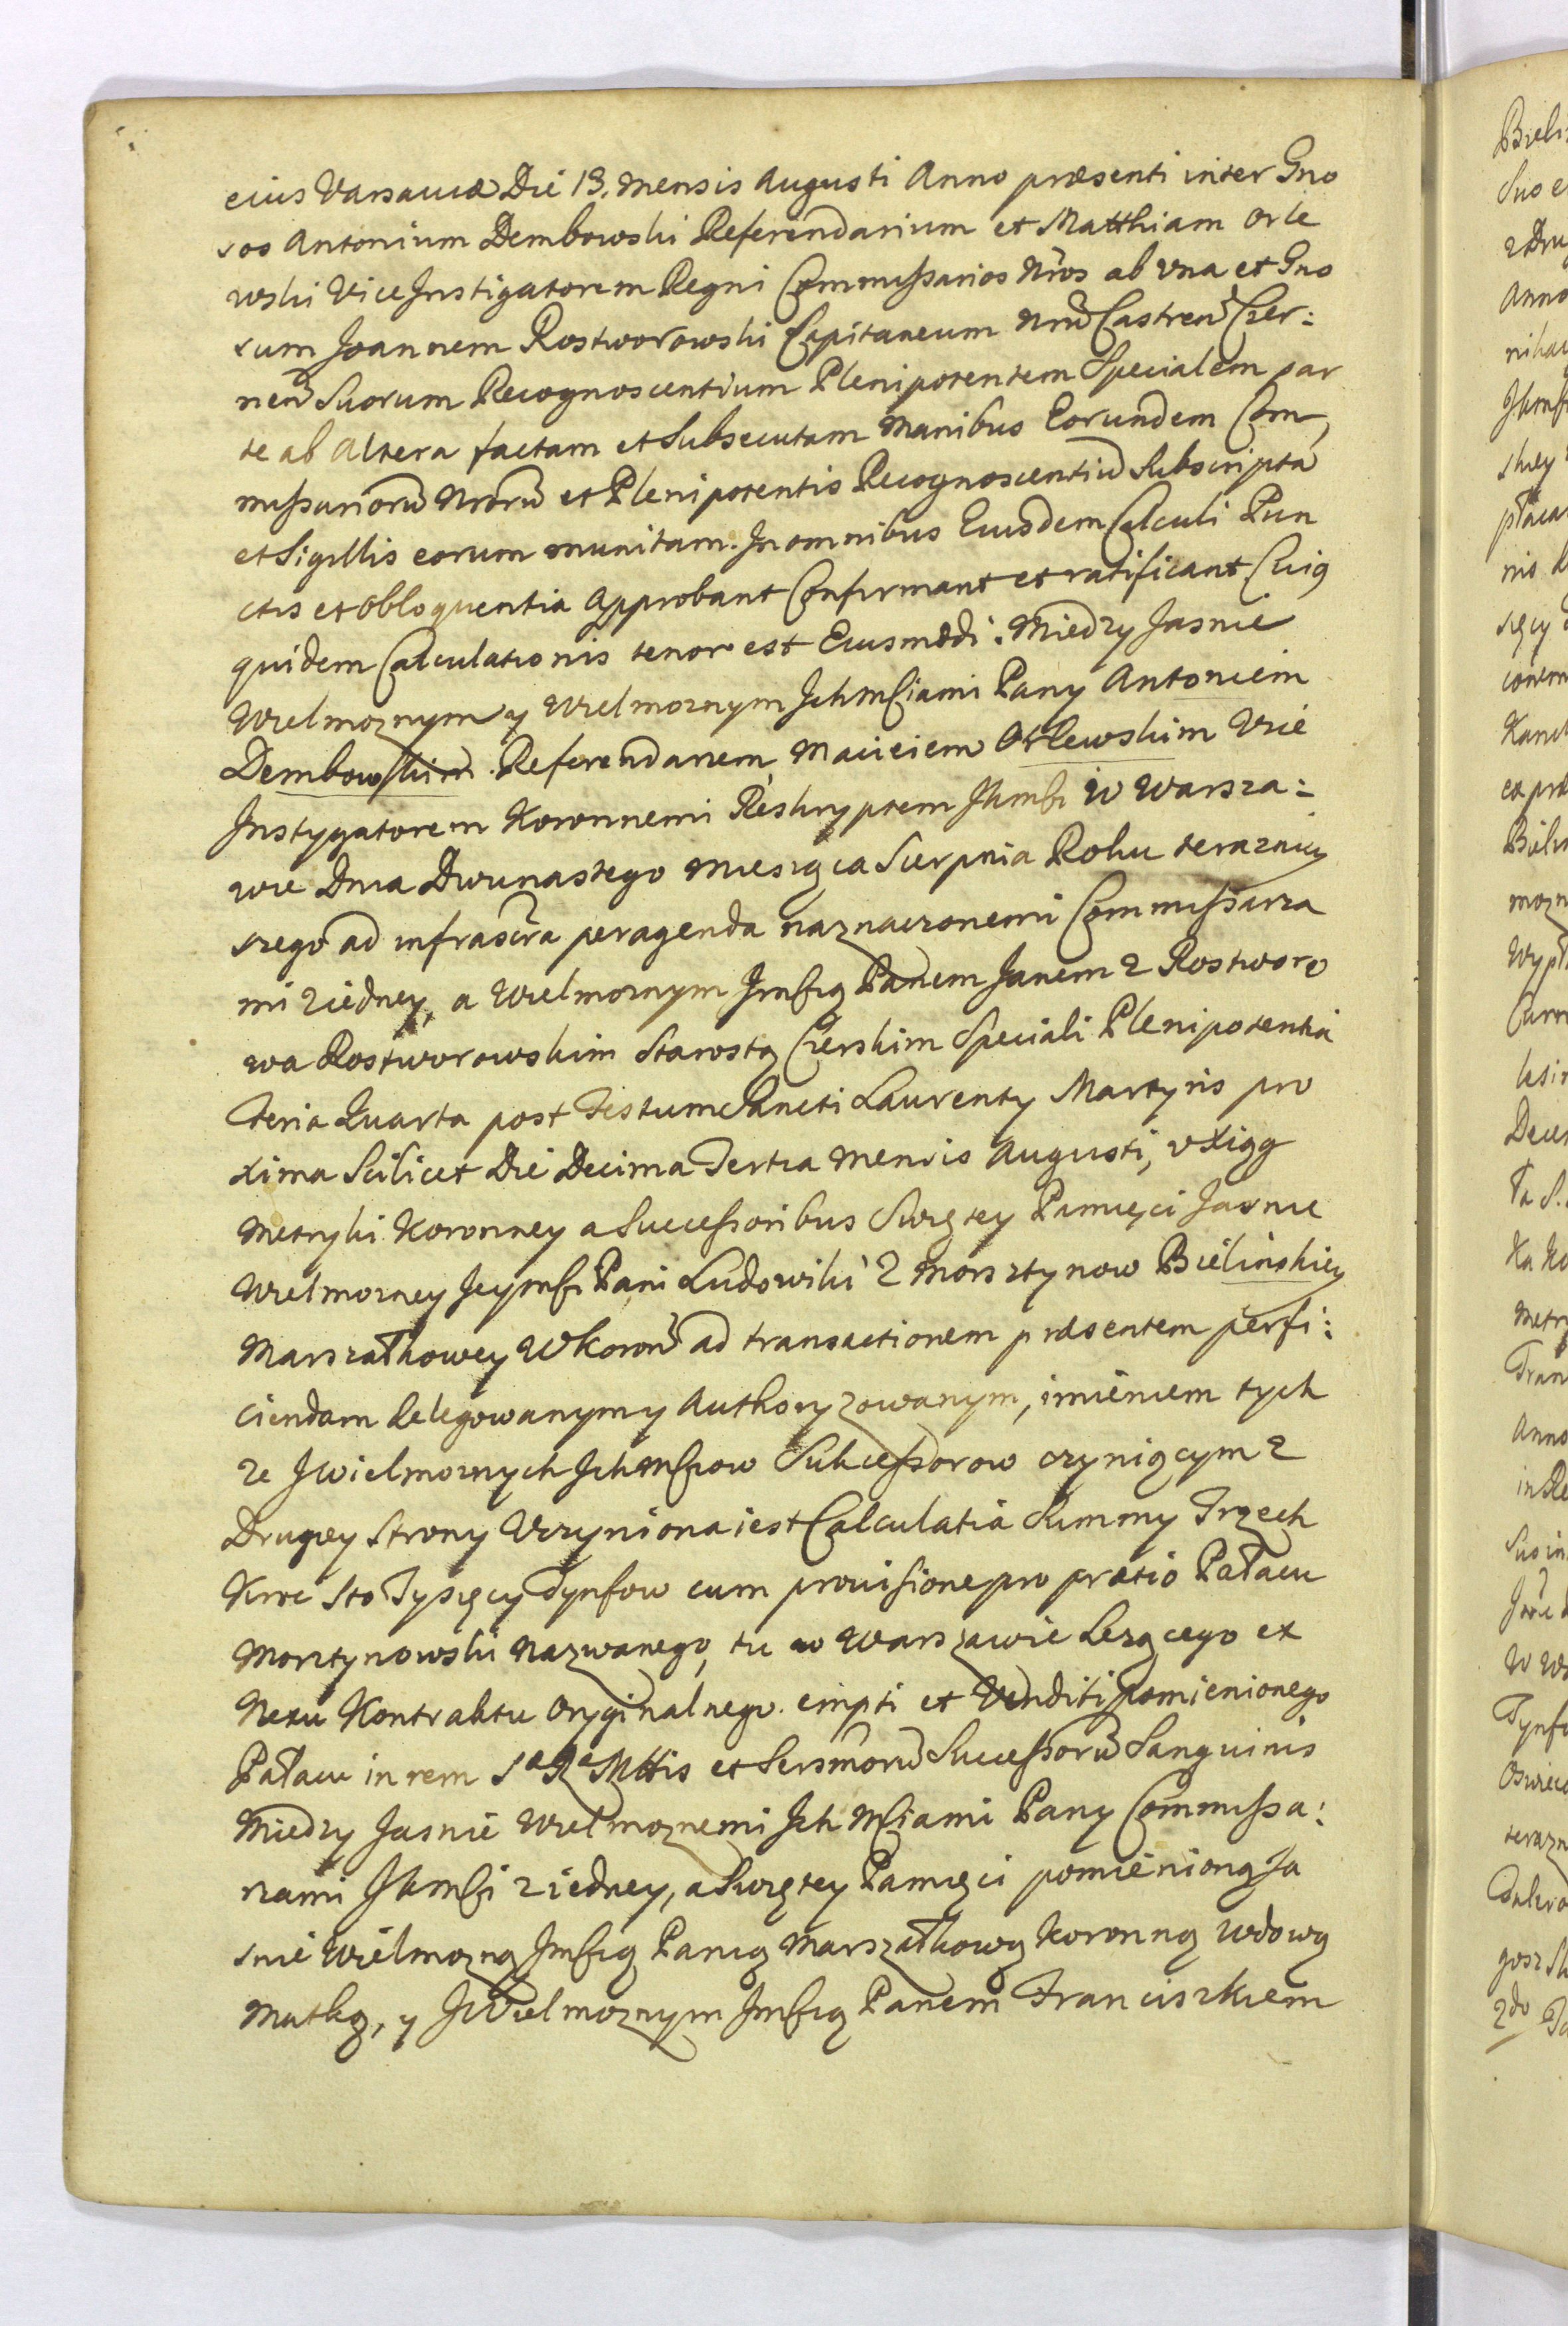 eius Varsaviæ Die 13. Mensis Augusti Anno præsenti inter Gno
sos Antonium Dembowski Referendarium et Matthiam Orle
wski Vice Instigatorem Regni Commissarios Nros ab vna et Gno
sum Joannem Rostworowski Capitaneum Nrm Castren Czer:
nen Suorum Recognoscentium Plenipotentem Specialem par
te ab Altera factam et Subsecutam Manibus Eorundem Com,
missariorũ Nrorũ et Plenipotentis Recognoscentiũ Subscripta
et Sigillis eorum munitam. In omnibus Eiusdem Calculi Pun
ctis et Obloquentia Approbant Confirmant et ratificant Cuig
quidem Calculationis tenor est Eiusmodi. Miedzy Jasnie
Wielmoznym y Wielmoznym Ich Msciami Pany Antoniem
Dembowskim Referendarem, Macieiem Orlewskim Vice
Instygatorem Koronnemi Reskryptem JKmsci W Warsza:
wie Dnia Dwunastego Miesiąca Sierpnia Roku terazniey
szego ad infrascra peragenda naznaczonemi Commissarza
mi ziedney, a Wielmoznym Jmscią Panem Janem z Rostworo
wa Rostworowskim Starostą Czerskim Speciali Plenipotentia
Feria Quarta post Festum Sancti Laurenty Martyris pro
xima Scilicet Die Decima Tertia Mensis Augusti, v Xiąg
Metryki Koronney a Successoribus Swiętey Pamięci Jasnie
Wielmozney Jeymsci Pani Ludowiki z Morsztynow Bielinskiey
Marszałkowey WKoron ad transactionem præsentem perfi:
ciendam Delegowanym y Authoryzowanym, imieniem tych
ze JWielmoznych Ich Msciow Sukcessorow czyniącym z
Drugiey Strony Vczyniona iest Calculatia Summy Trzech
Kroc Sto Tysięcy Tynfow cum provisione pro prætio Pałacu
Morsztynowski Nazwanego, tu w Warszawie Lezącego ex
Nexu Kontraktu Oryginalnego. empti et Venditi pomienionego
Pałacu in rem Sæ Ræ Mttis et Sersmorũ Successorũ Sanguinis
Miedzy Jasnie Wielmoznemi Ich Msciami Pany Commissa:
rzami JKmsci ziedney, a Swiętey Pamięci pomienioną Ja
snie Wielmozną Jmscią Panią Marszałkową Koronną Wdową
Matką, y JWielmoznym Jmscią Panem Franciszkiem